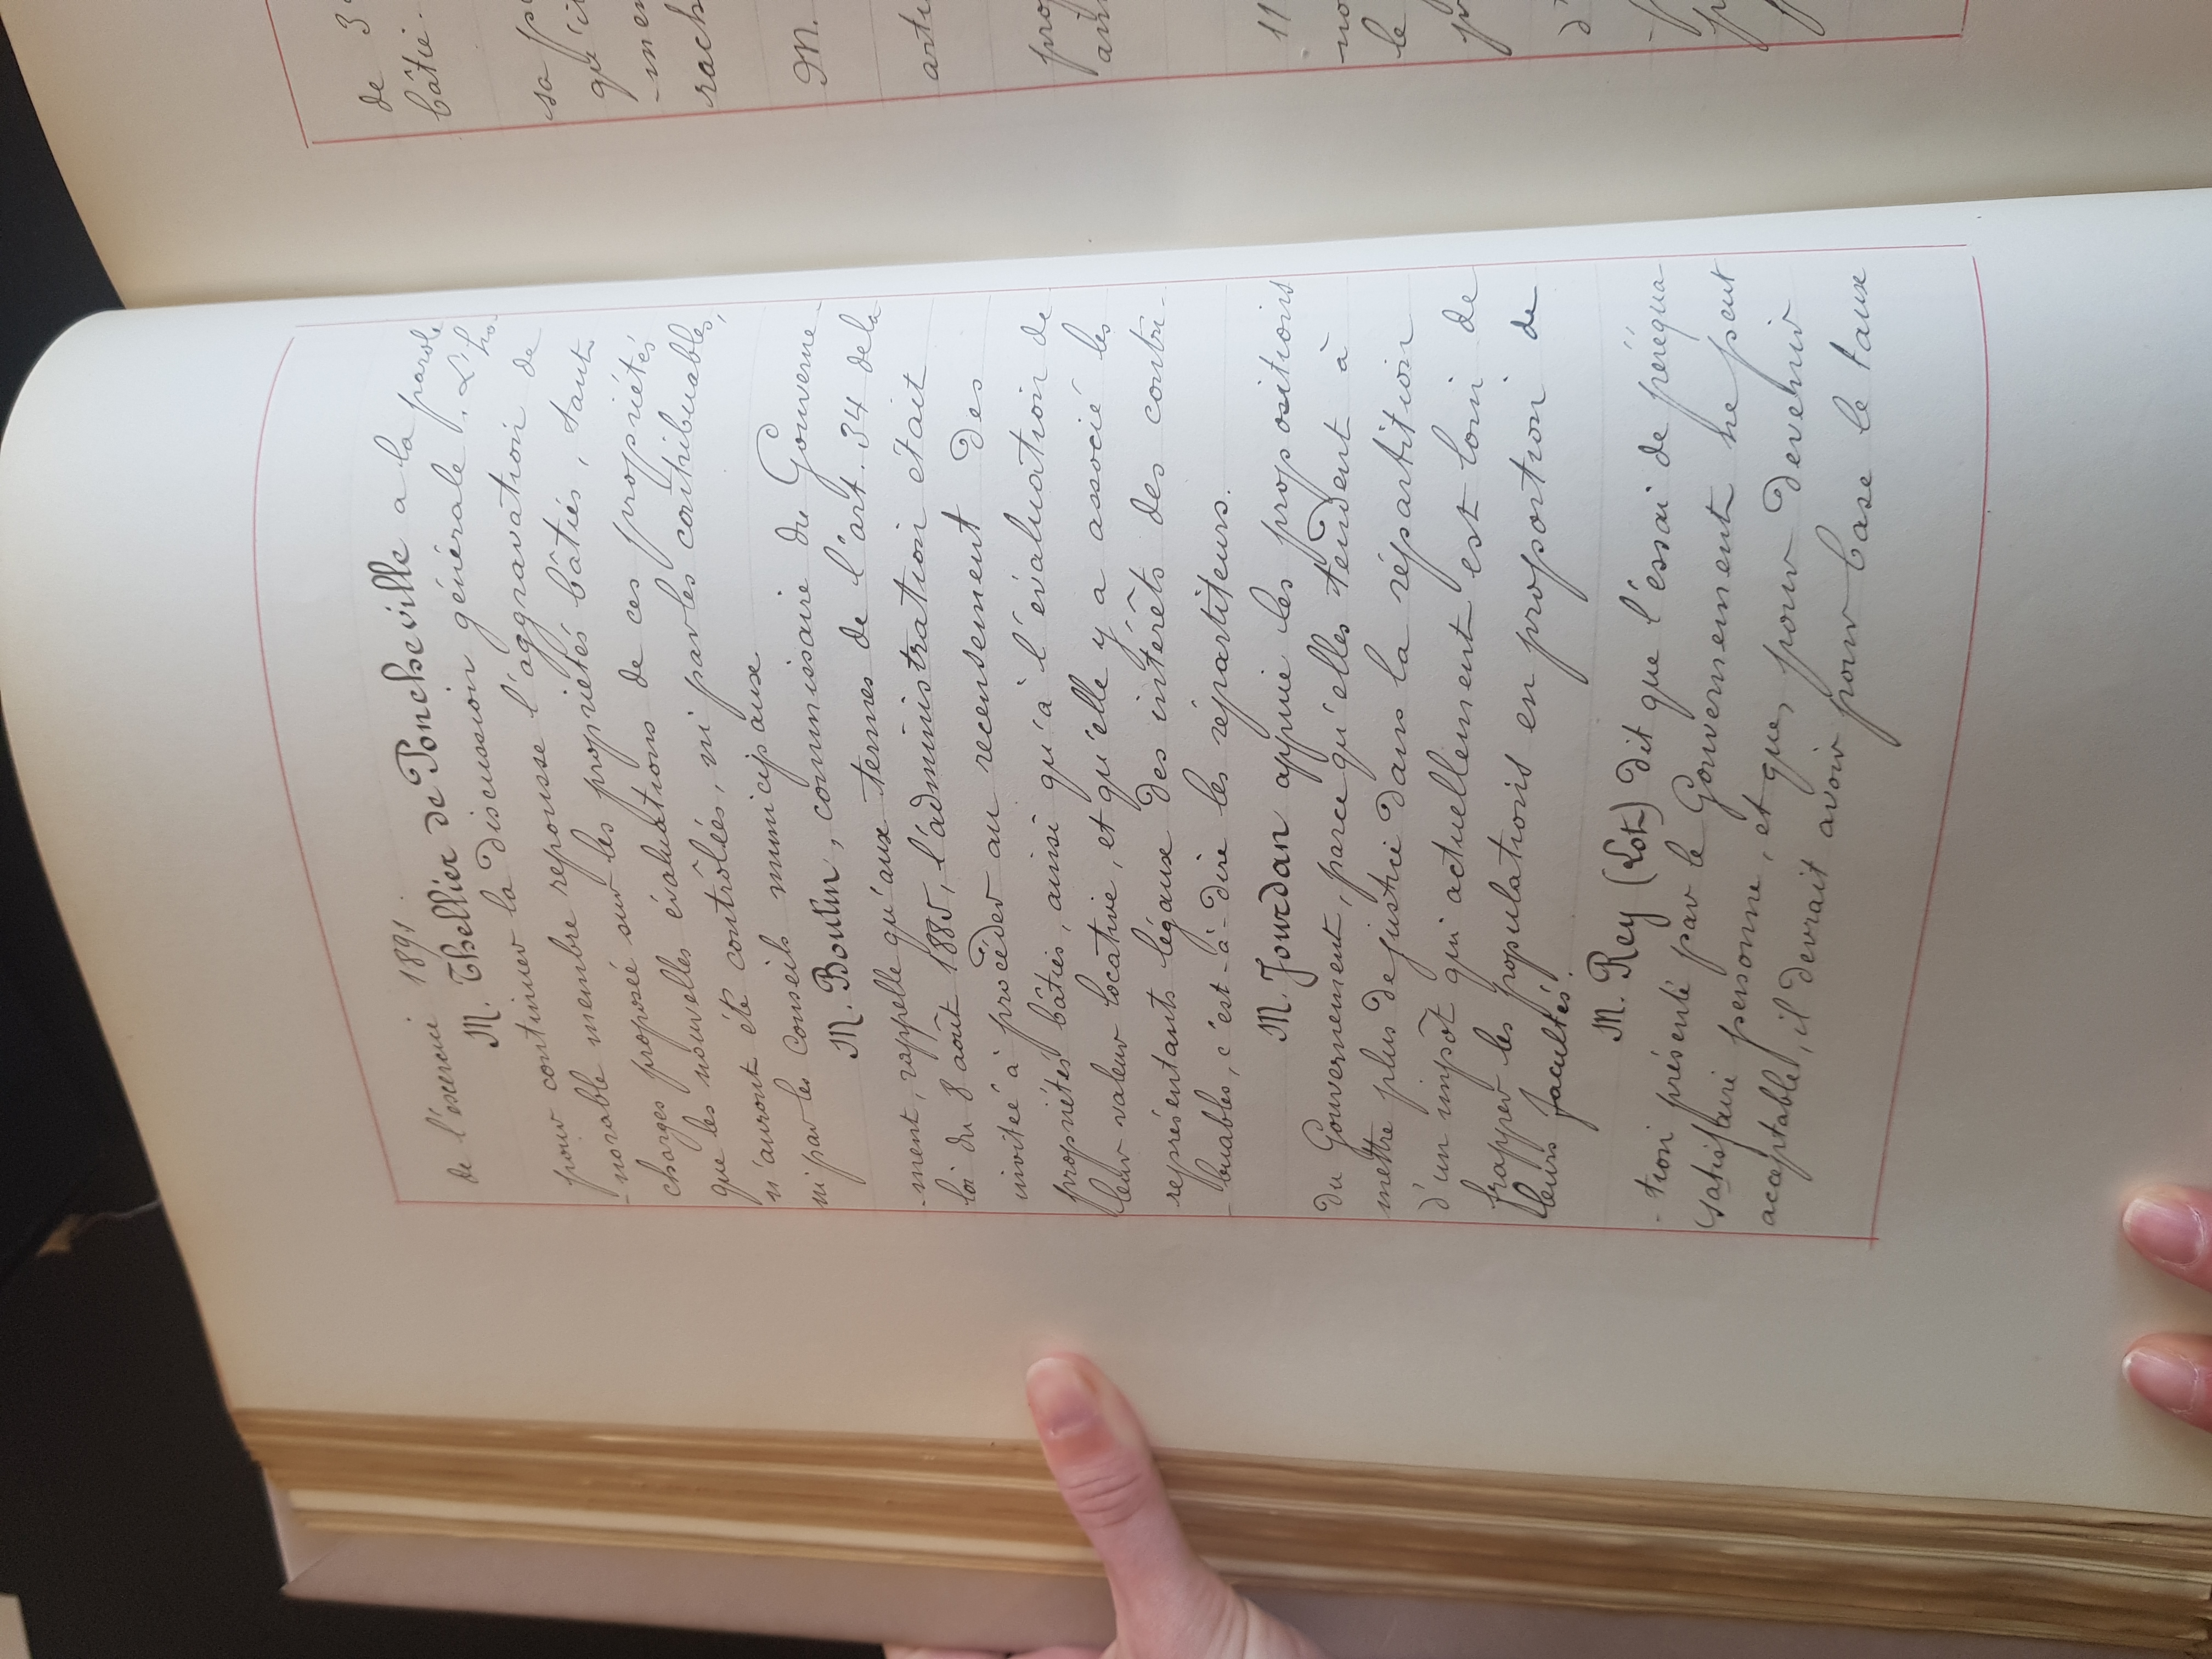 de l'exercice 1891.
M. Thellier de Poncheville a la parole
pour continuer la discussion générale. L'ho-
-norable membre repousse l'aggravation de
charges proposée sur les propriétés bâties, tant
que les nouvelles évaluations de ces propriétés
n'auront été contrôlées, ni par les contribuables,
ni par les Conseils municipaux.
M. Boutin, commissaire du Gouverne-
-ment, rappelle qu'aux termes de l'art. 34 de la
loi du 8 août 1885, l'administration était
invitée à procéder au recensement des
propriétés bâties, ainsi qu'à l'évaluation de
leur valeur locative, et qu'elle y a associé les
représentants légaux des intérêts des contri-
-buables, c'est-à-dire les répartiteurs.
M. Jourdan appuie les propositions
du Gouvernement, parce qu'elles tendent à
mettre plus de justice dans la répartition
d'un impôt qui actuellement est loin de
frapper les populations en proportion de
leurs facultés.
M. Rey (Lot) dit que l'essai de péréqua
-tion présenté par le Gouvernement ne peut
satisfaire personne, et que, pour devenir
acceptable, il devrait avoir pour base le taux
de 3
bâtie.
sa
qu'il
-men
rach
M.
arti
prop
ann
11
-no
le
d'